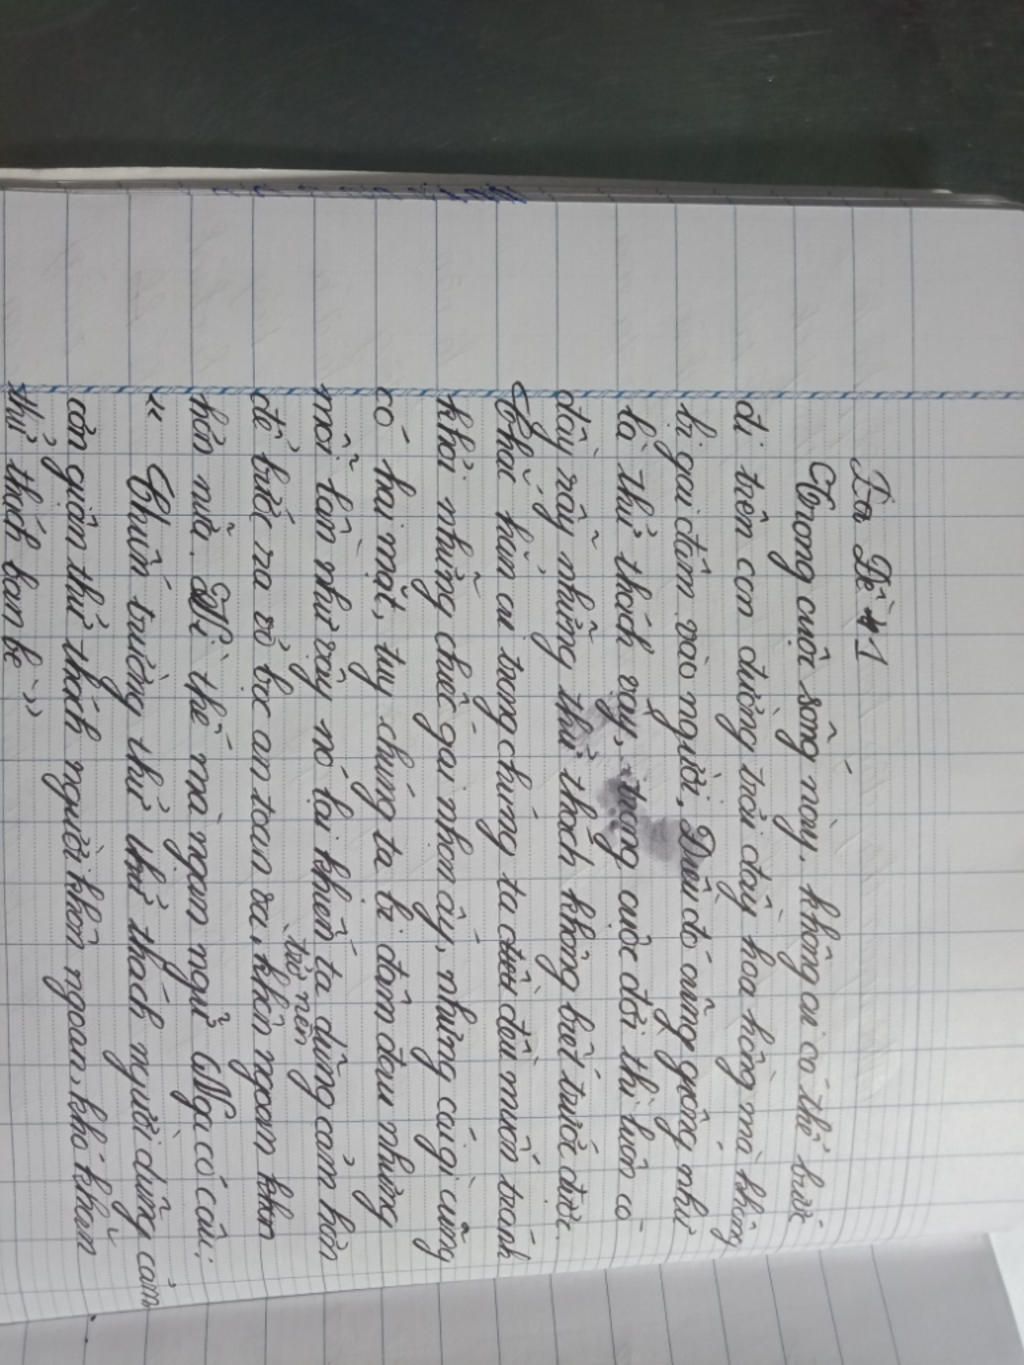 Đề 1
Trong cuộc sống này, không ai có thể bước
đi trên con đường trải đầy hoa hồng mà không
bị gai đâm vào người, Điều đó cũng giống như
là thử thách vậy, trong cuộc đời thì luôn có
đầy rẫy những thử thách không biết trước được.
Chắc hẳn ai trong chúng ta đều muốn tránh
khỏi những chiếc gai nhọn ấy, nhưng cái gì cũng
có hai mặt, tuy chúng ta bị đâm đau nhưng
mỗi lần như vậy nó lại khiến ta dũng cảm hơn
trở nên
để bước ra vỏ bọc an toàn và, khôn ngoan hơn
hơn nữa. Vì thế mà ngạn ngữ Nga có câu:
" Chiến trường thử thử thách người dũng cảm
cơn giận thử thách người khôn ngoan, khó khăn
thử thách bạn bè "